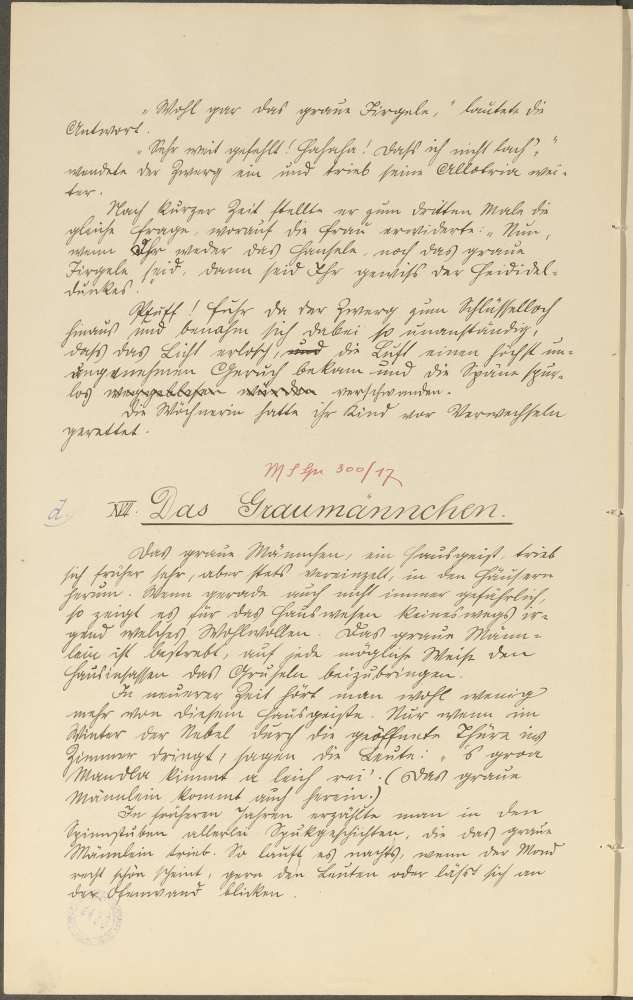 „Wohl gar das graue Jirgele," lautete die
Antwort.
„Sehr weit gefehlt! Hahaha! Dass ich nicht lach',"
wendete der Zwerg ein und trieb seine Allotria wei-
ter.
Nach kurzer Zeit stellte er zum dritten Male die
gleiche Frage, worauf die Frau erwiderte: „Nun,
wenn Ihr weder das Hansele, noch das graue
Jirgele seid, dann seid Ihr gewiss der Heididel-
dunkes!"
Pfuff! fuhr da der Zwerg zum Schlüsselloch
hinaus und benahm sich dabei so unanständig,
dass das Licht erlosch, und die Luft einen höchst un-
angenehmen Geruch bekam und die Späne spur-
los weggeblasen wurden verschwanden.
Die Wöchnerin hatte ihr Kind vor Verwechseln
gerettet.
M S Gu 300/17
2. XVII. Das Graumännchen.
Das graue Männchen, ein Hausgeist, trieb
sich früher sehr, aber stets vereinzelt, in den Häusern
herum. Wenn gerade auch nicht immer gefährlich,
so zeigt es für das Hauswesen keineswegs ir-
gend welches Wohlwollen. Das graue Männ-
lein ist bestrebt, auf jede mögliche Weise den
Hausinsassen das Gruseln beizubringen.
In neuerer Zeit hört man wohl wenig
mehr von diesem Hausgeiste. Nur wenn im
Winter der Nebel durch die geöffnete Thüre ins
Zimmer dringt, sagen die Leute: „'s groa
Mandla kimmt a leich rei'. (Das graue
Männlein kommt auch herein.)
In früheren Jahren erzählte man in den
Spinnstuben allerlei Spukgeschichten, die das graue
Männlein trieb. So lauft es nachts, wenn der Mond
recht schön scheint, gern den Leuten oder lässt sich an
der Ofenwand blicken.